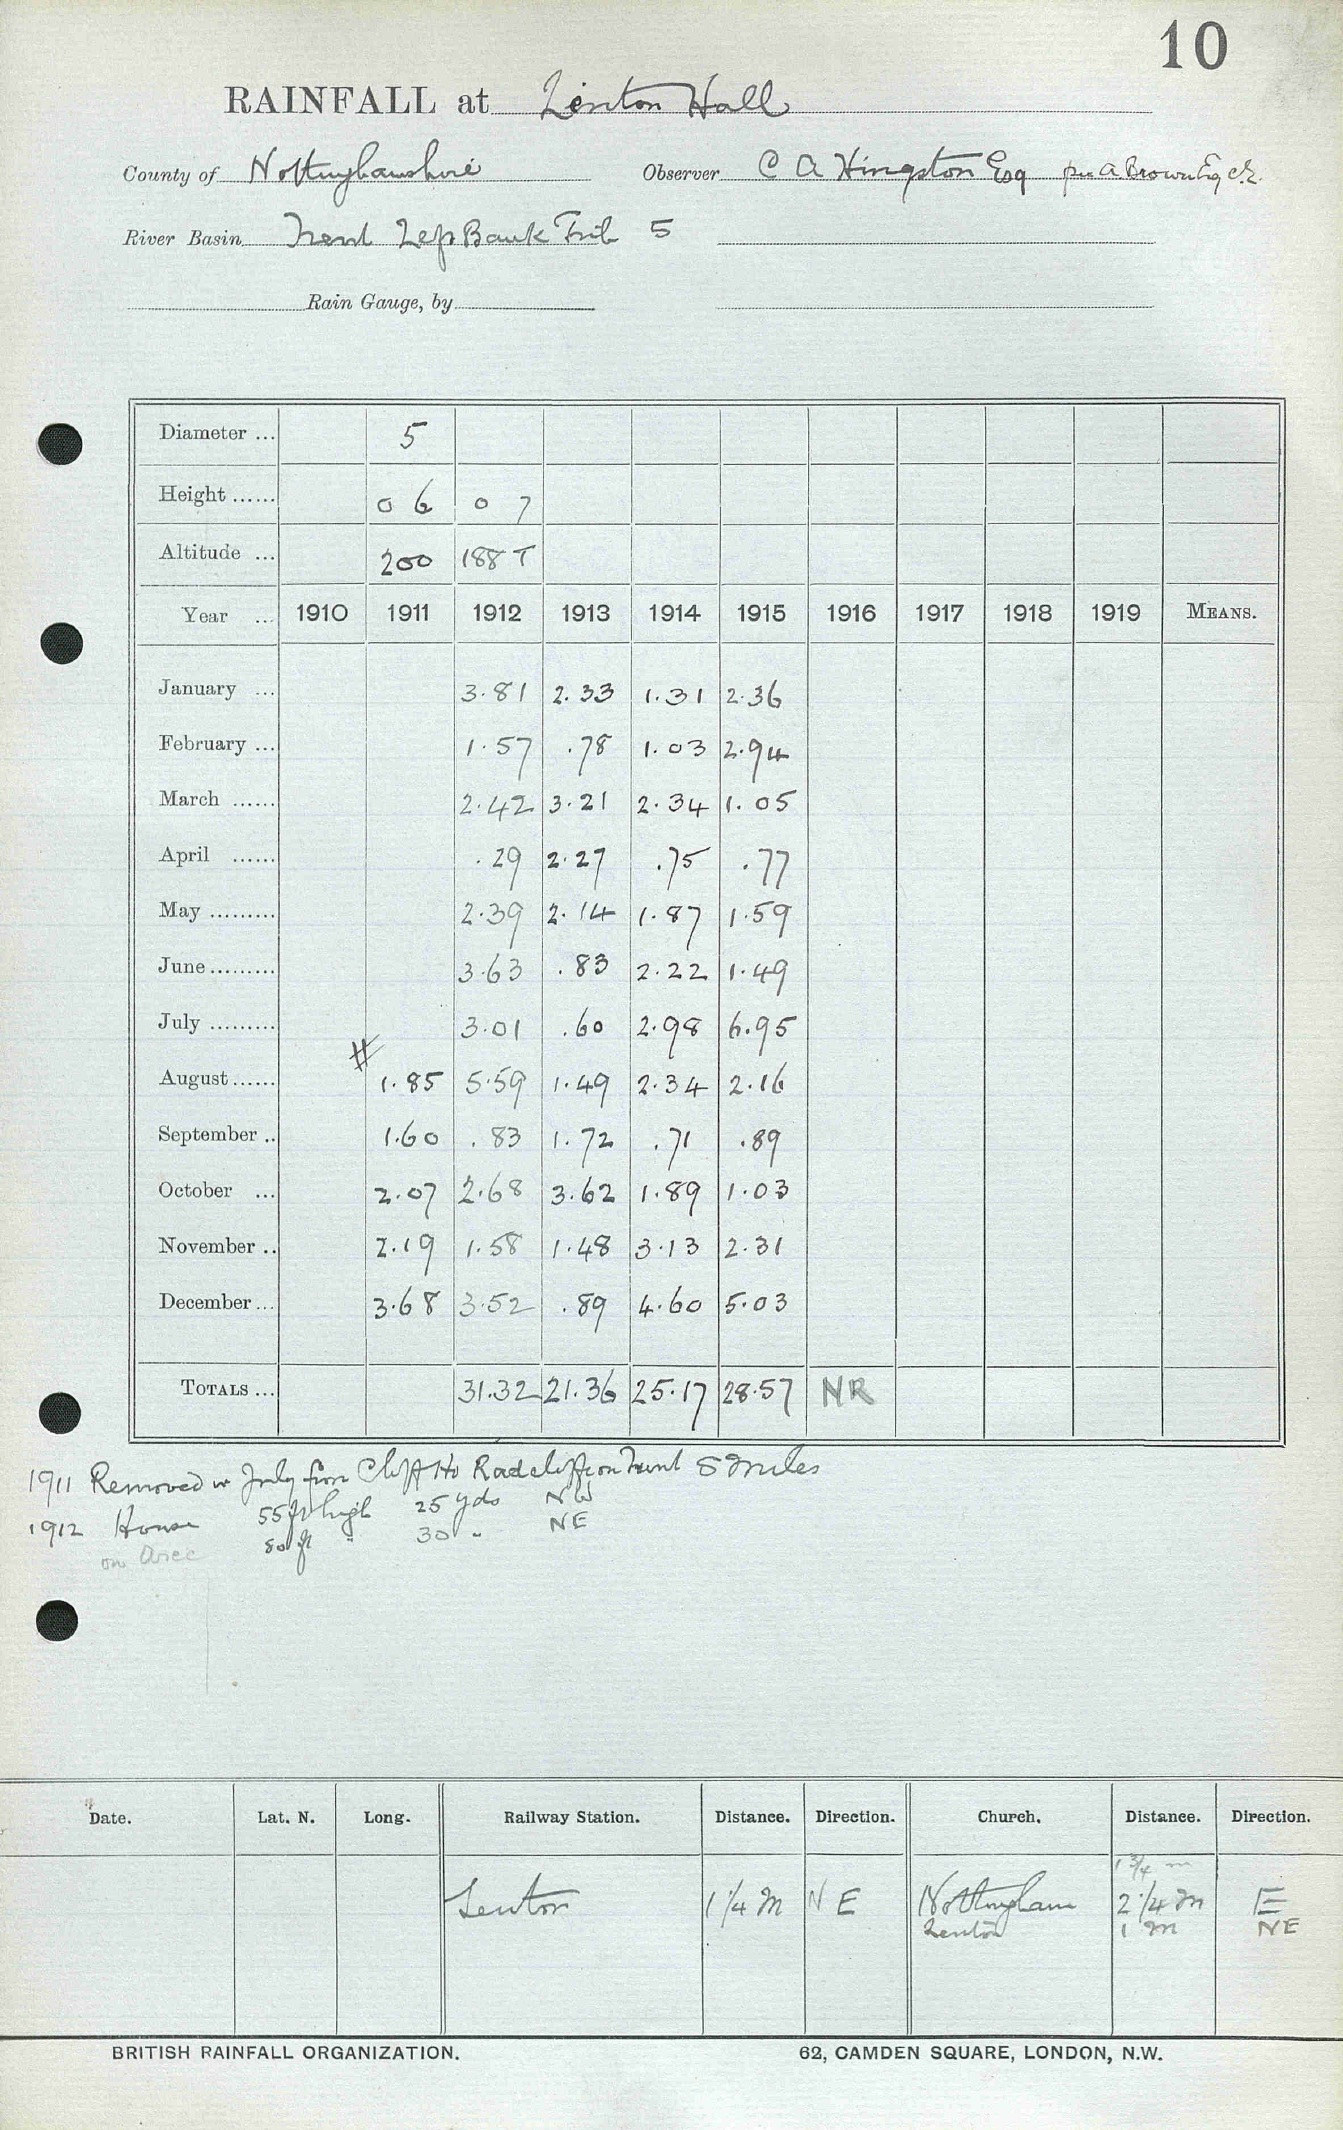 10
RAINFALL at Lenton Hall
County of Nottinghamshire Observer C A Hingston Esq per A Brown Esq C.E.
River Basin Trent Left Bank Trib 5
Rain Gauge, by
Diameter ... 5
Height ...... 0 6 0 7
Altitude ... 200 188 T
Year ... 1910 1911 1912 1913 1914 1915 1916 1917 1918 1919 MEANS.
January ... 3.81 2.33 1.31 2.36
February ... 1.57 .78 1.03 2.94
March ...... 2.42 3.21 2.34 1.05
April ...... .29 2.27 .75 .77
May ......... 2.39 2.14 1.87 1.59
June ......... 3.63 .83 2.22 1.49
July ......... 3.01 .60 2.98 6.95
August ...... # 1.85 5.59 1.49 2.34 2.16
September .. 1.60 .83 1.72 .71 .89
October ... 2.07 2.68 3.62 1.89 1.03
November .. 2.19 1.58 1.48 3.13 2.31
December ... 3.68 3.52 .89 4.60 5.03
TOTALS ... 31.32 21.36 25.17 28.57 NR
1911 Removed in July from Cliff Ho Radcliffe on Trent 8 miles
1912 House 55 ft high 25 yds NW
80 ft " 30 " NE
Date. Lat. N. Long. Railway Station. Distance. Direction. Church. Distance. Direction.
1 3/4 m
Lenton 1 1/4 M N E Nottingham 2 1/4 M E
Lenton 1 m NE
BRITISH RAINFALL ORGANIZATION. 62, CAMDEN SQUARE, LONDON, N.W.